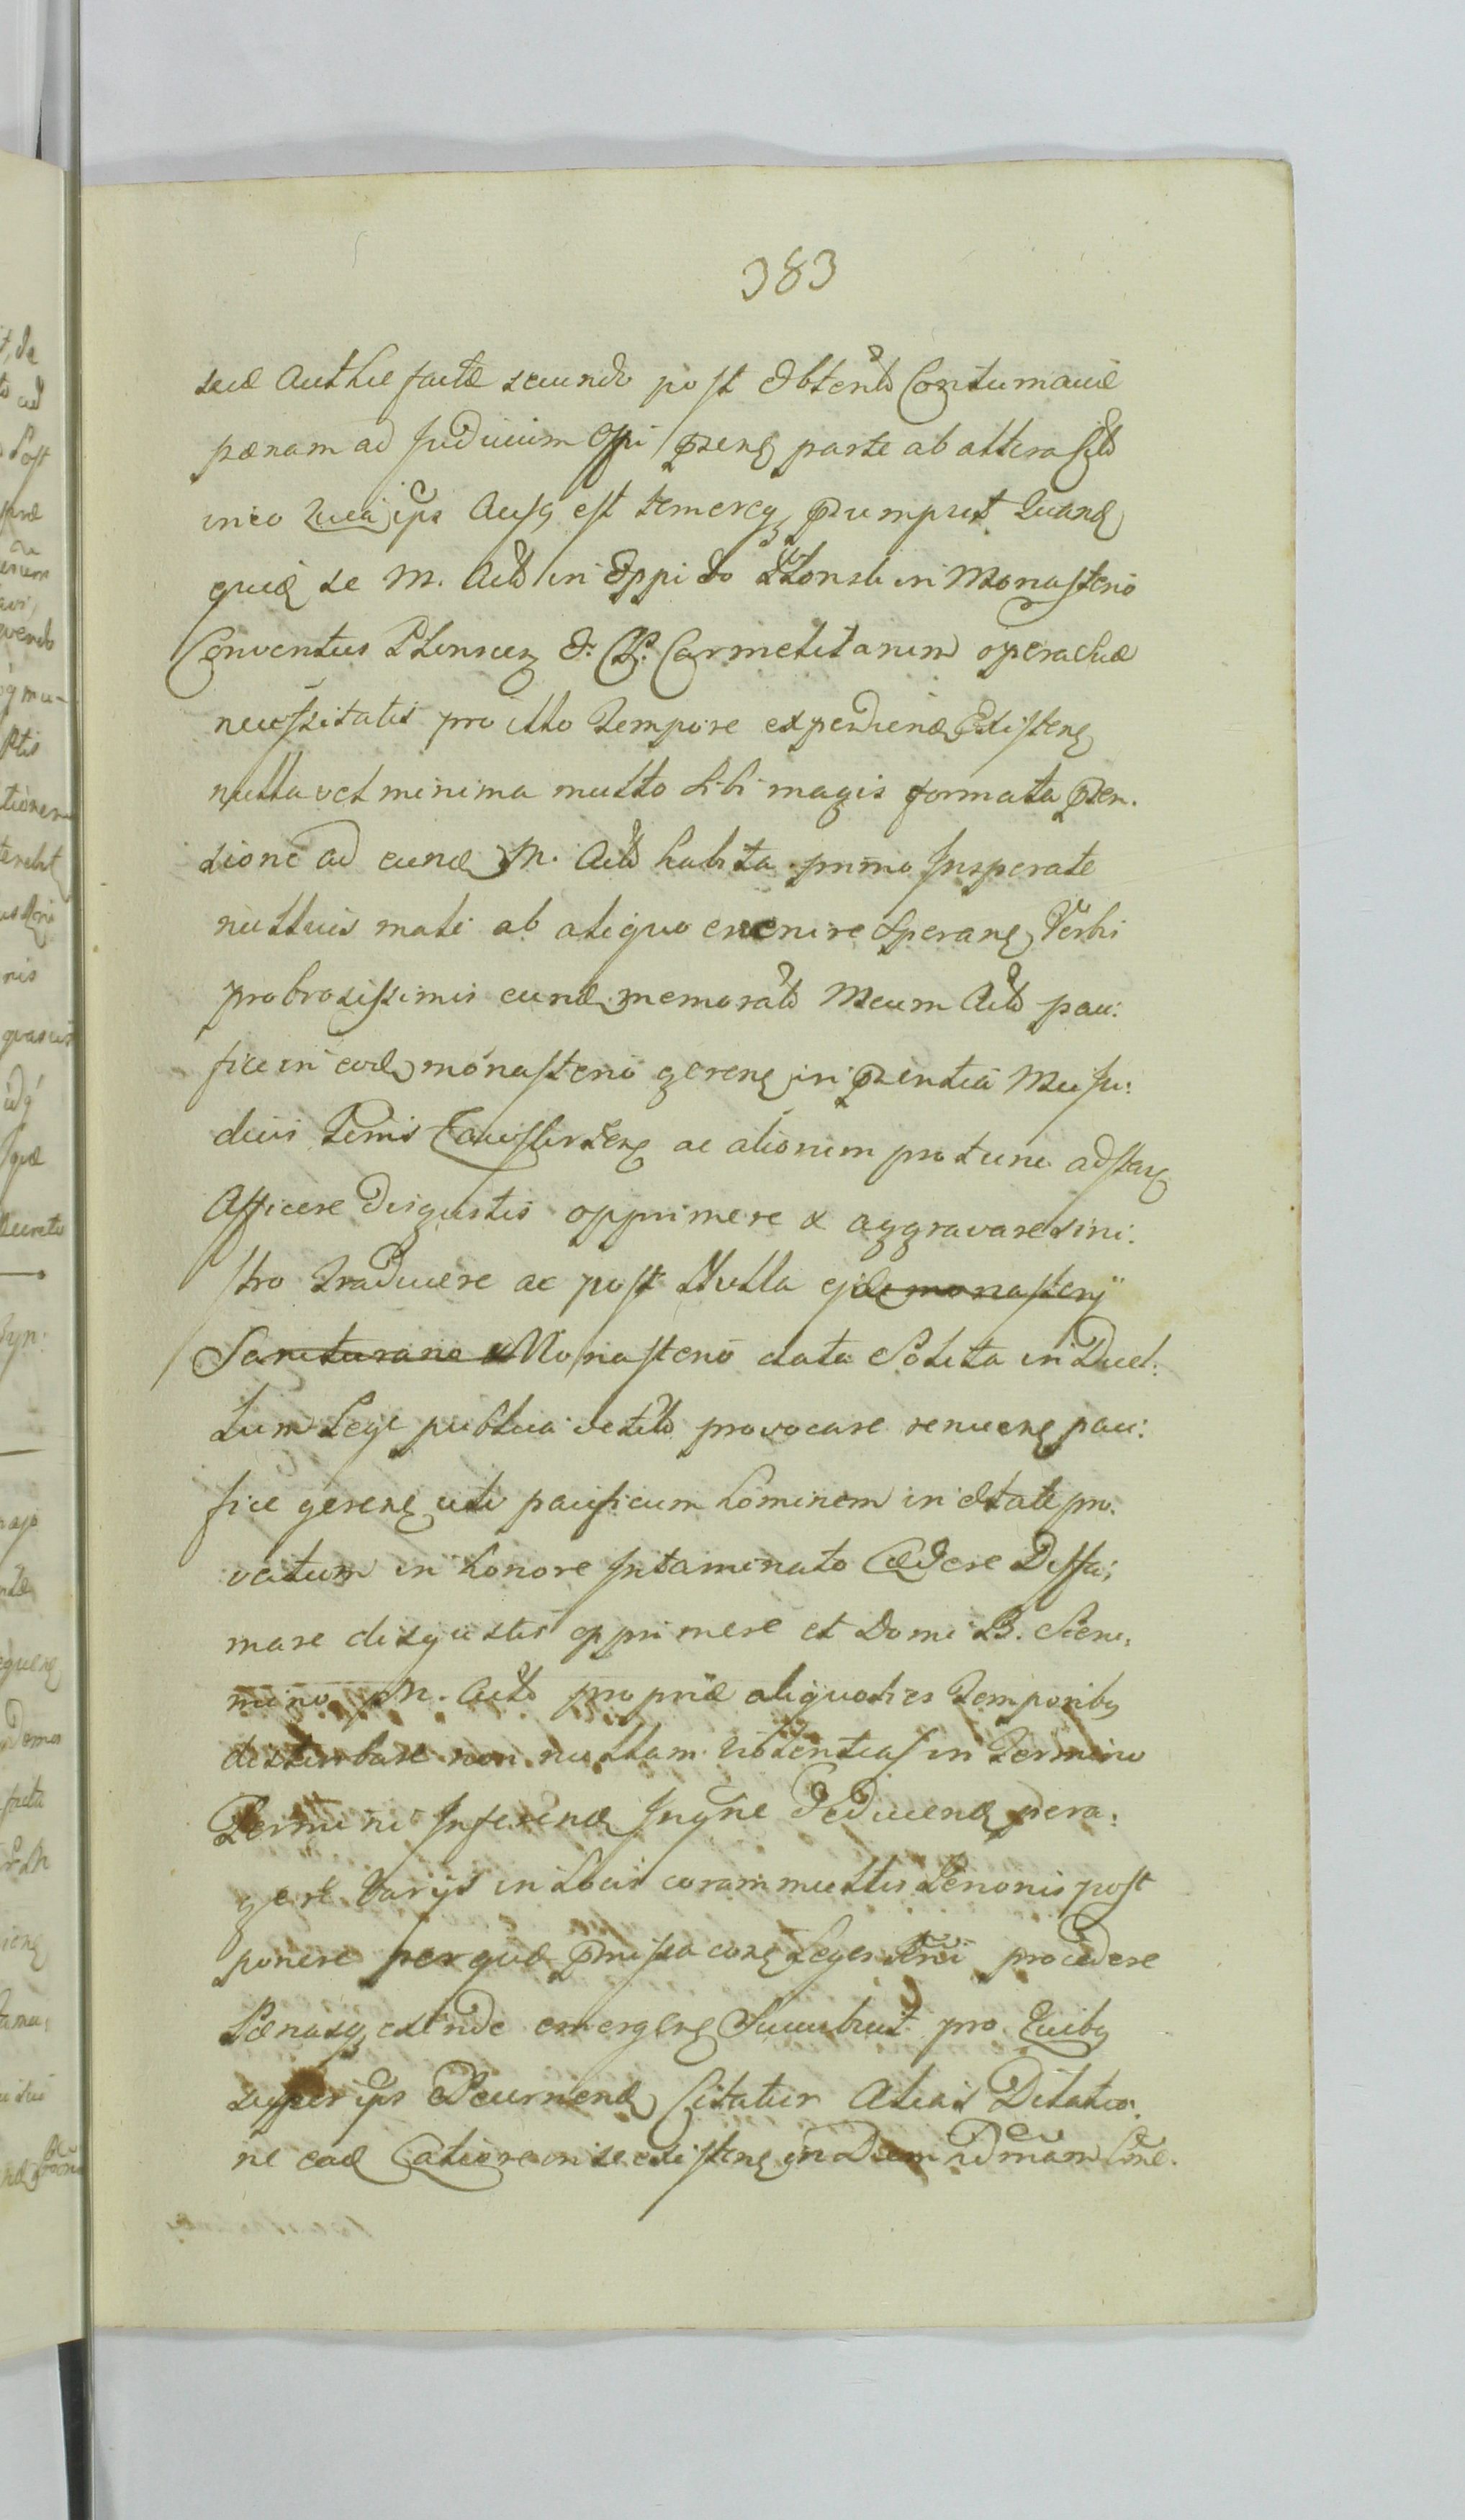 383
suæ Authæ factæ secundo post Obtentā Contumaciæ
pænam ad Judicium Offi præns parte ab altera
in eo quia ips Ausq est temereq præsumpsit quand
quia se M. Act in Oppido Plonsk in Monasterio
Conventus Plonscen O: PP. Carmelitanum opera suæ
necessitatis pro illo tempore expediend Existens
nulla vel minima multo sibi magis formata præten.
sione ad eund M. Act habita primo Insperate
nullius mali ab aliquo evenire Sperans Verbi
probrosissimis eund memorat Meum Act paci:
fice in eod monasterio gerens in præsentia Mei Ju:
dicis aliorum pro tunc adstan
Afficere Disgustis opprimere & aggravare sini:
stro traducere ac post Nulla monasterij
Monasterio data Solita in Duel:
lum Lege publica vetit provocare renuens paci:
fice gerens uti pacificum hominem in ætate pro
vectum in honore Intaminato Cædere Diffa:
mare disgustis opprimere et Domi B.
mino M. Act propriæ aliquoties temporibq
disturbare non nullam violentias in Termino
Termini Inferend Ingne Deducend pera:
gere Varijs in Locis coram multis Personis post
ponere per quæ præmissa conq Leges procedere
Pænasq exinde emergens Succubuit pro Quibq
super ips Decernend Citatur Alias Dilatio:
ne ead Catione on se existens in Diem